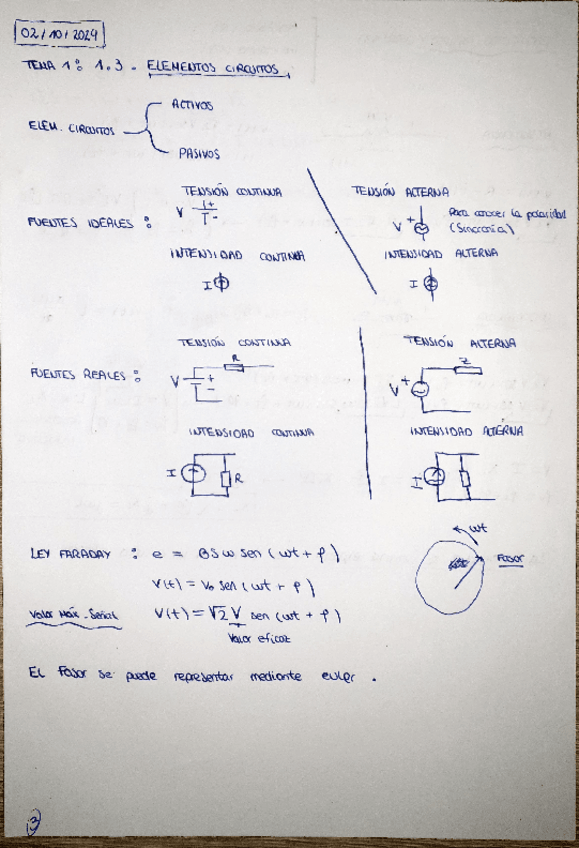 02/10/2024
TEMA 1: 1.3 - ELEMENTOS CIRCUITOS
ELEM. CIRCUITOS
ACTIVOS
PASIVOS
FUENTES IDEALES :
TENSIÓN CONTINUA
V + -
INTENSIDAD CONTINUA
I
TENSIÓN ALTERNA
V +
Para conocer la polaridad
(Sincronía)
INTENSIDAD ALTERNA
I
FUENTES REALES :
TENSIÓN CONTINUA
R
V + -
INTENSIDAD CONTINUA
I R
TENSIÓN ALTERNA
Z
V +
INTENSIDAD ALTERNA
I
LEY FARADAY : e = BSω sen (ωt + φ)
V(t) = V₀ sen (ωt + φ)
Valor Máx. Señal V(t) = √2 V sen (ωt + φ)
Valor eficaz
ωt
Fasor
El Fasor se puede representar mediante euler .
3